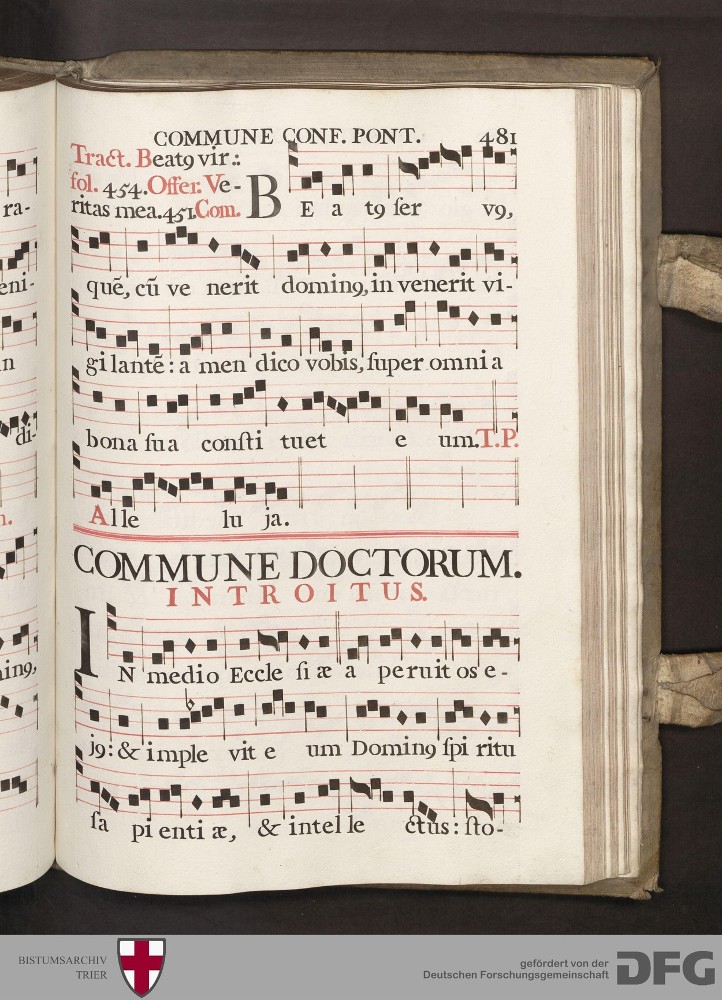 COMMUNE CONF. PONT. 481
Tract. Beatꝯ vir.:
fol. 454. Offer. Ve-
ritas mea. 451. Com. BEatꝯ ſervꝯ,
quē, cū ve nerit dominꝯ, in venerit vi-
gilantē: a men dico vobis, ſuper omnia
bona ſua conſti tuet e um. T.P.
Alle lu ja.
COMMUNE DOCTORUM.
INTROITUS.
IN medio Eccle ſi æ a peruit os e-
jꝯ: & imple vit e um Dominꝯ ſpi ritu
ſa pi enti æ, & intel le ctus: ſto-
ra-
eni-
n
di-
ingꝯ,
BISTUMSARCHIV
TRIER
gefördert von der
Deutschen Forschungsgemeinschaft
DFG